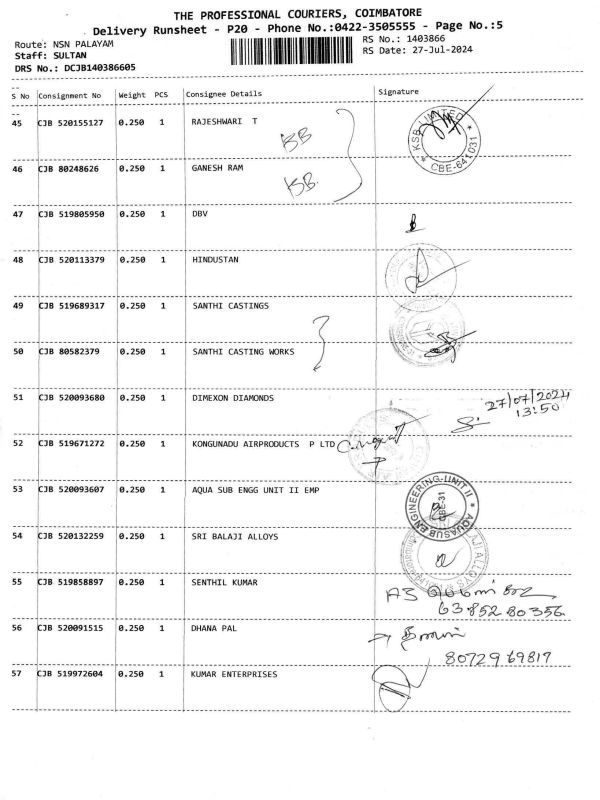 THE PROFESSIONAL COURIERS, COIMBATORE
Delivery Runsheet - P20 - Phone No.:0422-3505555 - Page No.:5
Route: NSN PALAYAM
RS No.: 1403866
Staff: SULTAN
RS Date: 27-Jul-2024
DRS No.: DCJB140386605
S No Consignment No Weight PCS Consignee Details Signature
45 CJB 520155127 0.250 1 RAJESHWARI T
KSB LIMITED * CBE-641031 *
BB
46 CJB 80248626 0.250 1 GANESH RAM
BB.
47 CJB 519805950 0.250 1 DBV
48 CJB 520113379 0.250 1 HINDUSTAN
49 CJB 519689317 0.250 1 SANTHI CASTINGS
50 CJB 80582379 0.250 1 SANTHI CASTING WORKS
51 CJB 520093680 0.250 1 DIMEXON DIAMONDS
27/07/2024
13:50
52 CJB 519671272 0.250 1 KONGUNADU AIRPRODUCTS P LTD
53 CJB 520093607 0.250 1 AQUA SUB ENGG UNIT II EMP
AQUASUB ENGINEERING-UNIT II * CBE-31
54 CJB 520132259 0.250 1 SRI BALAJI ALLOYS
55 CJB 519858897 0.250 1 SENTHIL KUMAR
63852 80356
56 CJB 520091515 0.250 1 DHANA PAL
80729 69817
57 CJB 519972604 0.250 1 KUMAR ENTERPRISES